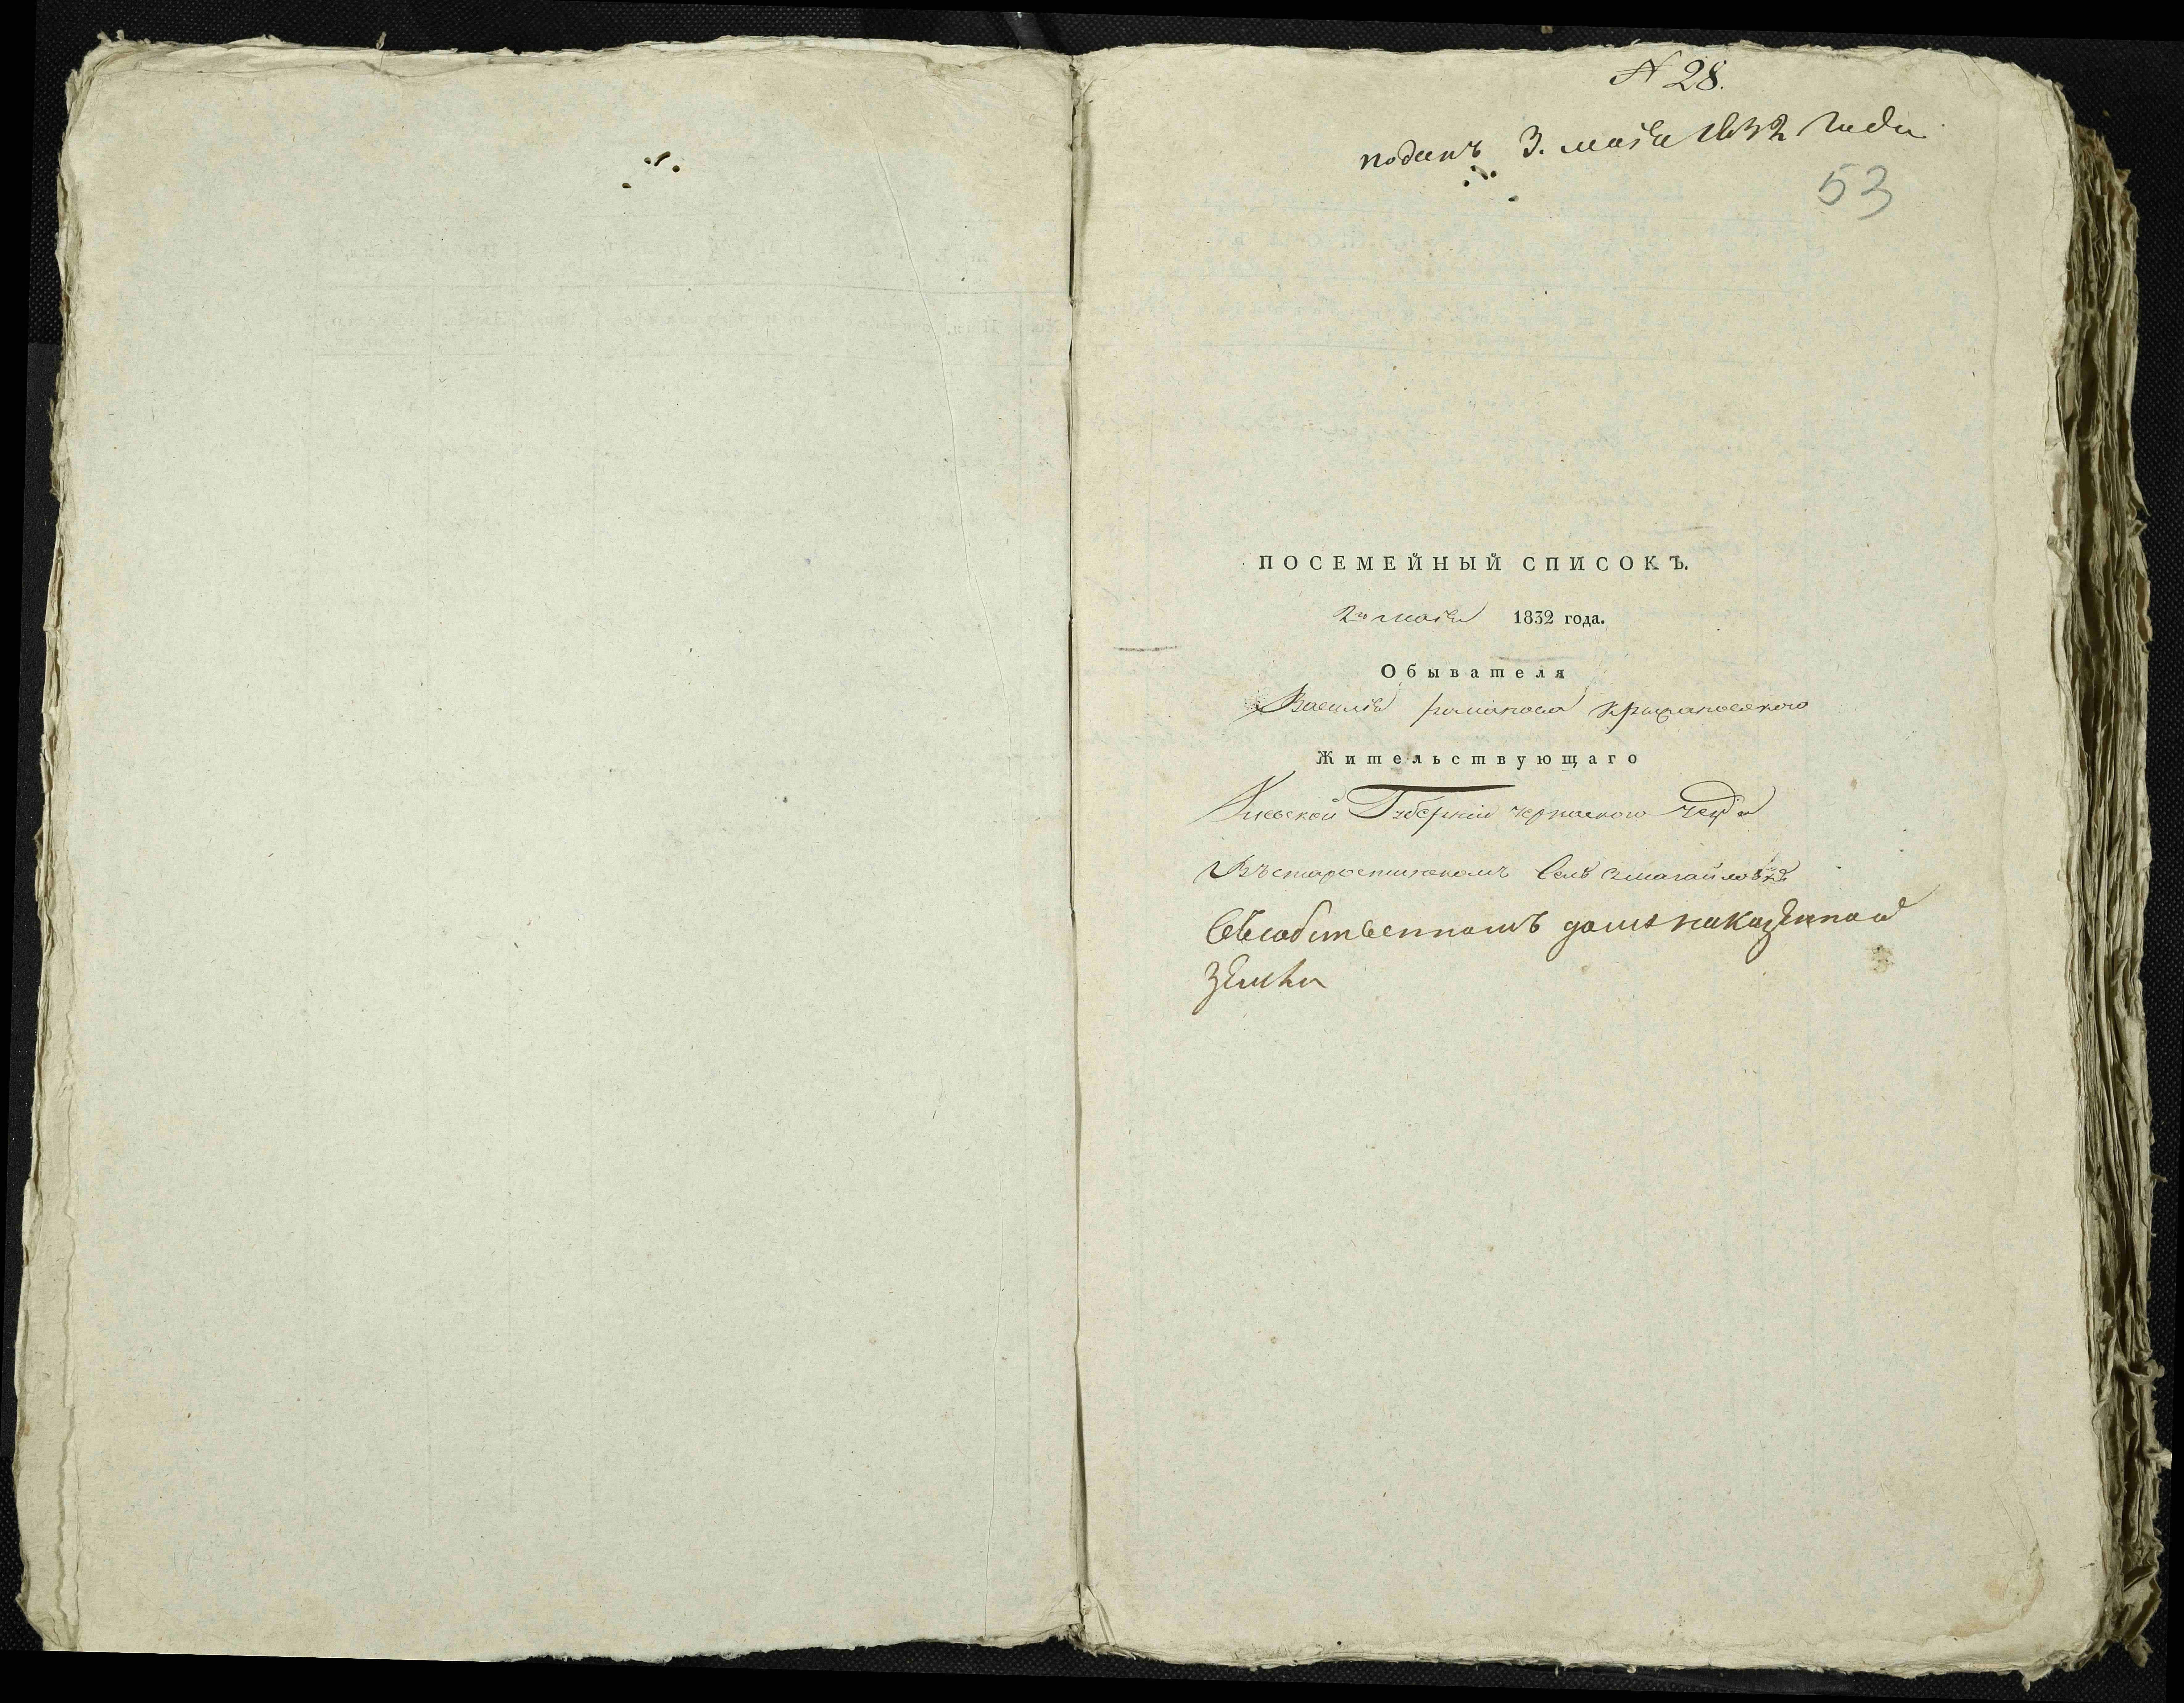 N 28.
поданъ 3. маія 1832 года
53
ПОСЕМЕЙНЫЙ СПИСОКЪ.
2го маія 1832 года.
Обывателя
Василія романова Крыжановского
Жительствующаго
Киевской Губерніи черкаского уезда
Въ старостинскомъ Селѣ Змагайловке
Въ собственномъ доме на казенной
земли